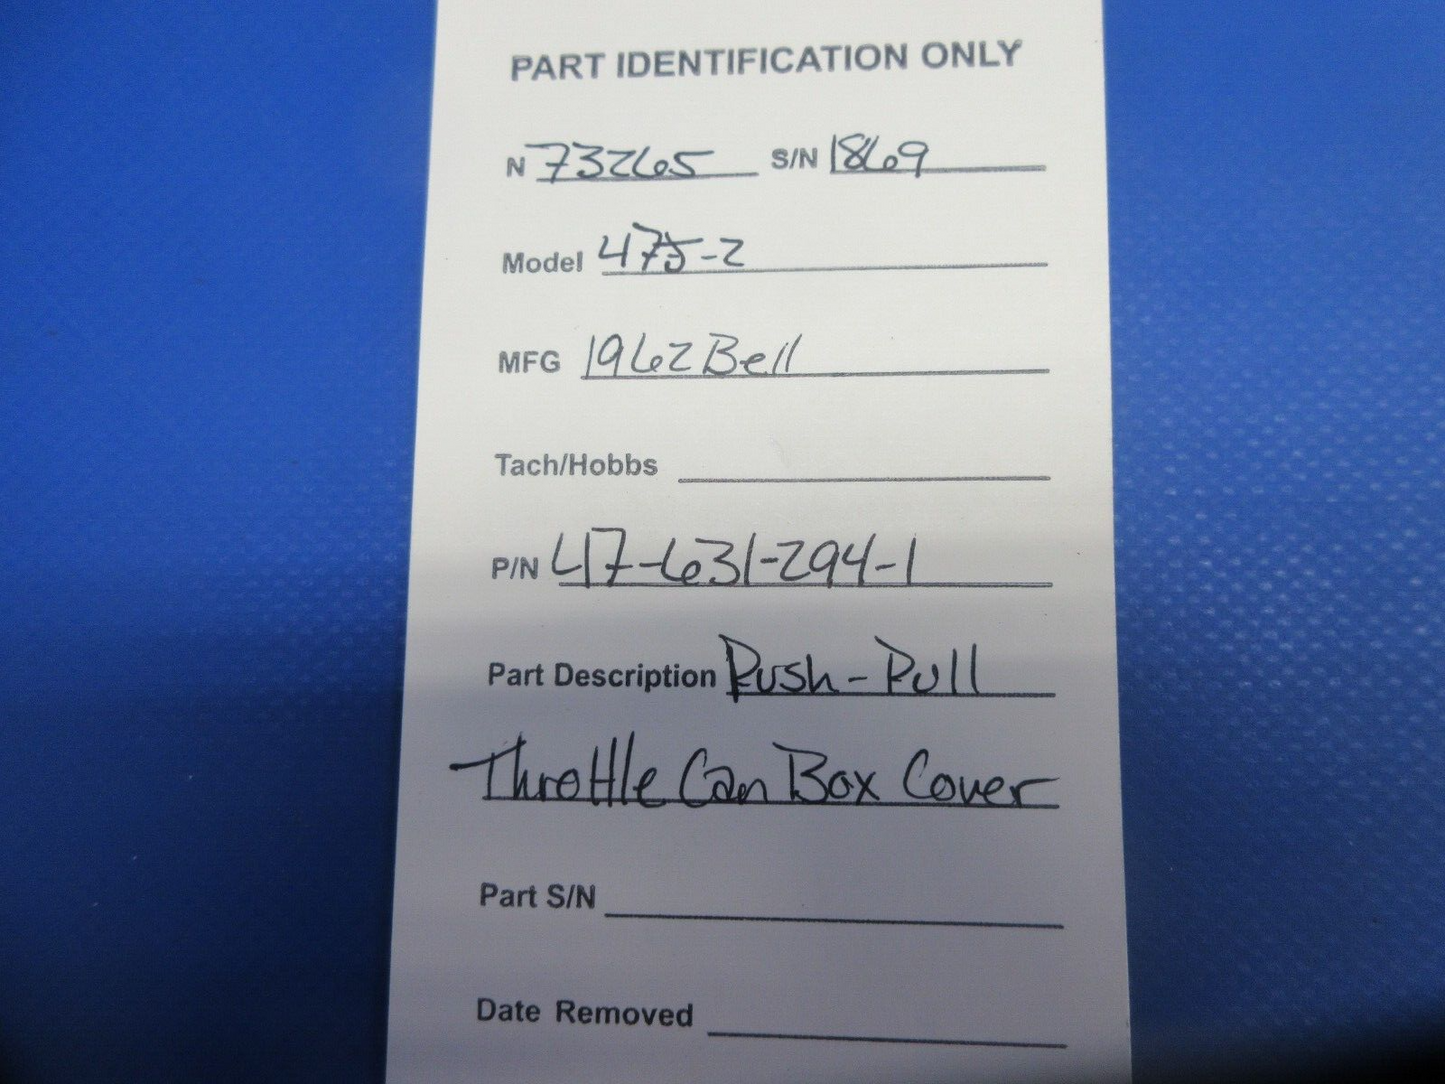 PART IDENTIFICATION ONLY
N 73265 S/N 1869
Model 47J-2
MFG 1962 Bell
Tach/Hobbs
P/N 47-631-294-1
Part Description Push-Pull
Throttle Can Box Cover
Part S/N
Date Removed